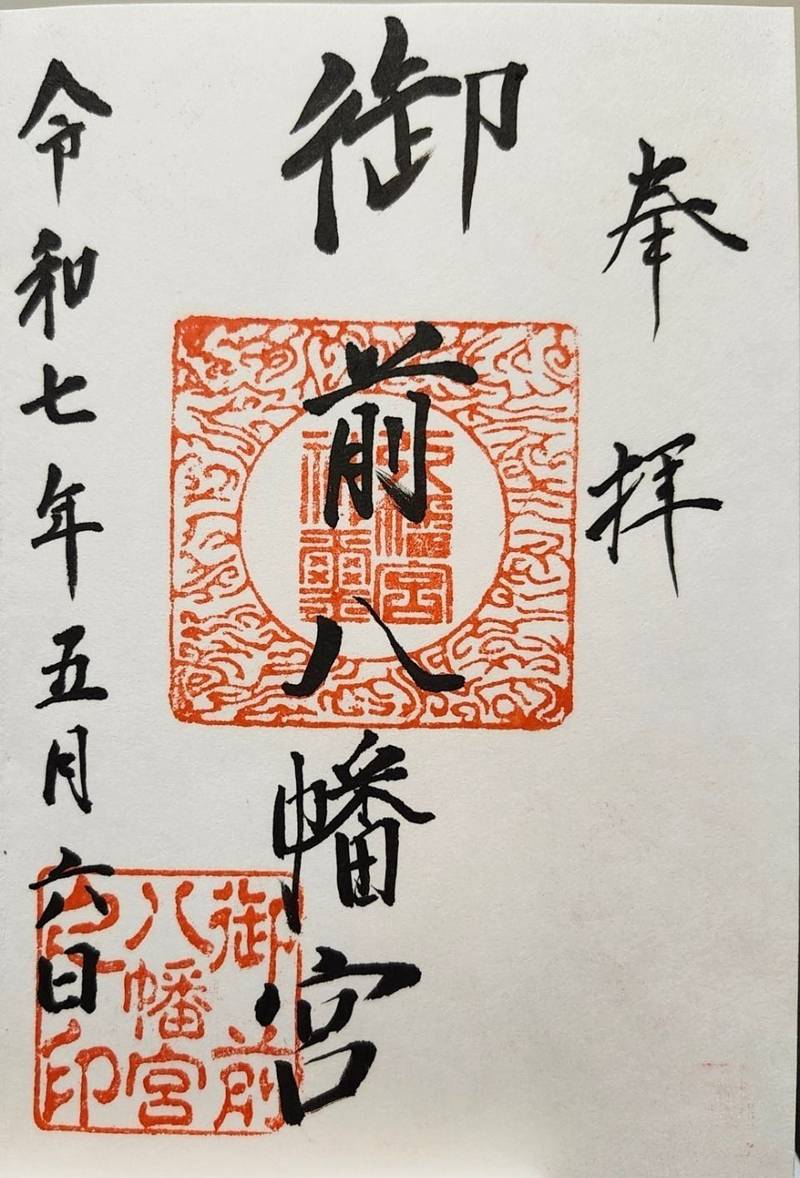 奉拝
御前八幡宮
八幡宮
神璽
令和七年五月六日
御前
八幡宮
之印